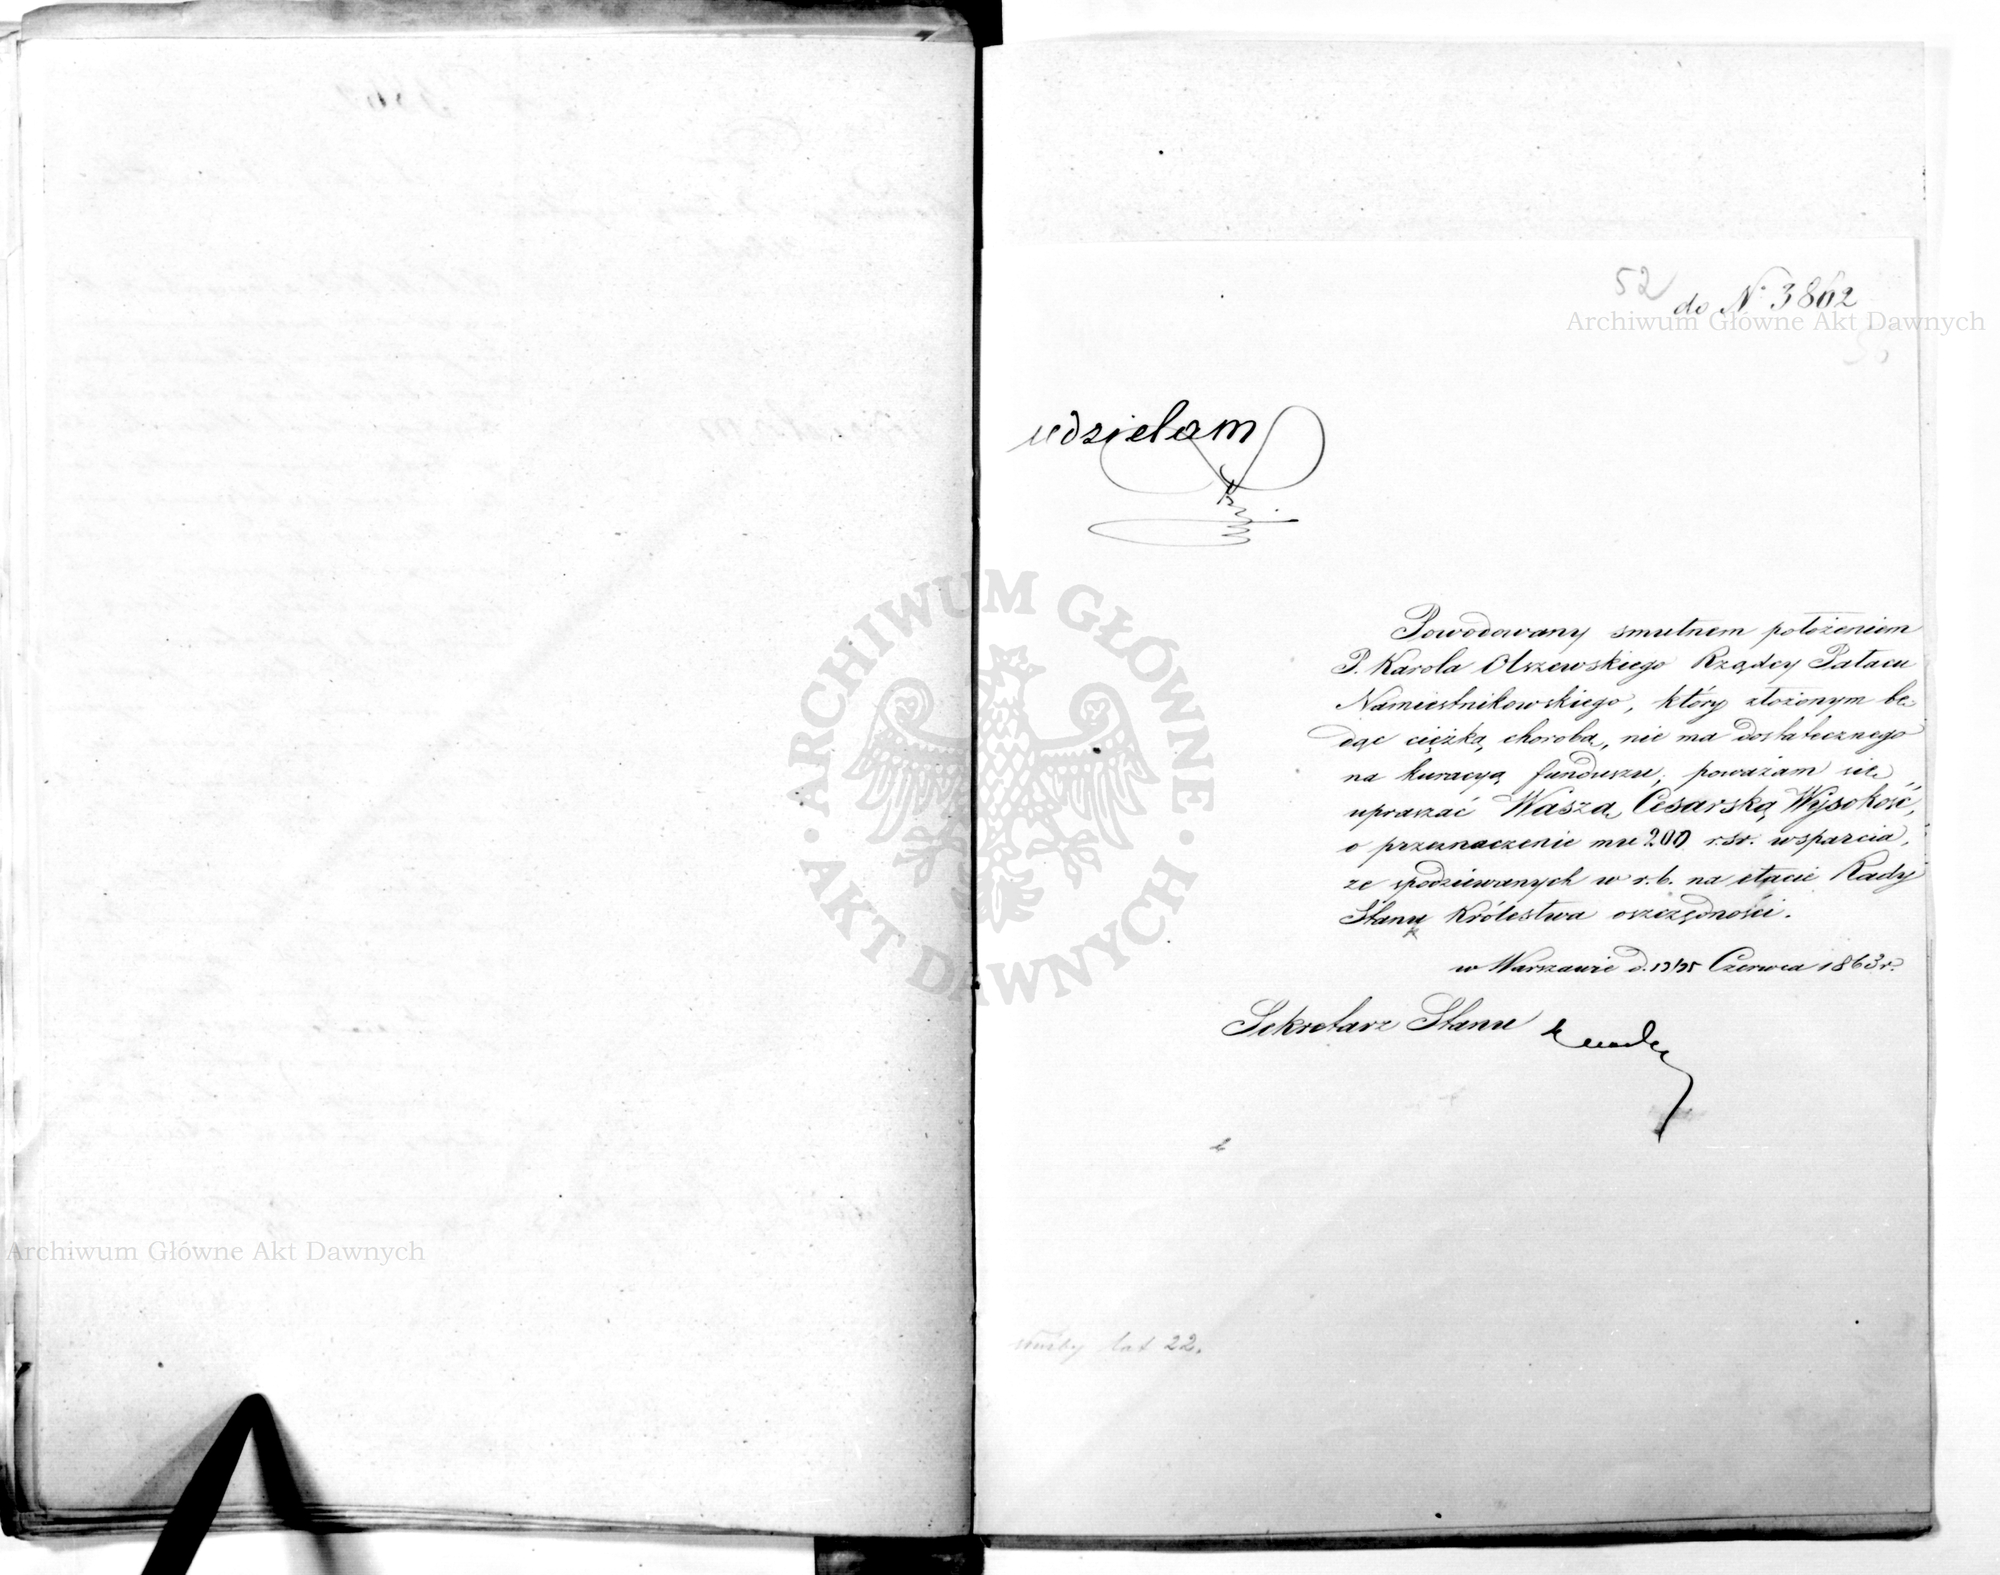 52
do N° 3862
Archiwum Główne Akt Dawnych
udzielam
Powodowany smutnem położeniem
P. Karola Olszewskiego Rządcy Pałacu
Namiestnikowskiego, który złożonym bę-
dąc ciężką chorobą, nie ma dostatecznego
na kuracyą funduszu, poważam się
upraszać Waszą Cesarską Wysokość,
o przeznaczenie mu 200 r.sr. wsparcia,
ze spodziewanych w r.b. na etacie Rady
Stanu Królestwa oszczędności.
w Warszawie d. 13/25 Czerwca 1863 r.
Sekretarz Stanu
ARCHIWUM GŁÓWNE
AKT DAWNYCH
Archiwum Główne Akt Dawnych
służby lat 22.